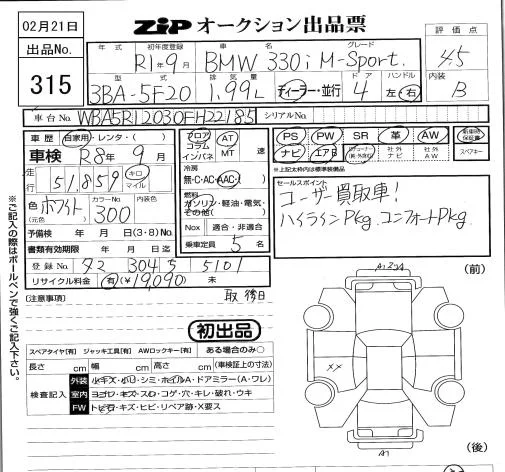 02月21日
ZIP オークション出品票
出品No.
315
評価点
4.5
内装
B
年式 初年度登録 車名 グレード
R1年9月 BMW 330i M-Sport.
型式 排気量 ドア ハンドル
3BA-5F20 1.99L ディーラー・並行 4 左・右
車台No. WBA5R12030FH22185 シリアルNo.
車歴 自家用・レンタ・( )
車検 R8年9月
走行 51,859 キロ マイル
色 ホワイト カラーNo. 300 内装色
(元色)
予備検 年 月 日(3・8)No.
書類有効期限 年 月 日迄
登録No. 72 304 5 5101
リサイクル料金 有(¥19,090) 未
フロア コラム インパネ
AT MT 速
冷房
無・C・AC・AAC
燃料
ガソリン・軽油・電気・その他( )
Nox 適合・非適合
乗車定員 5 名
PS PW SR 革 AW
ナビ エアB 社外ナビ 社外AW
新車時保証書
スペアキー
※上記太枠内は標準装備品
セールスポイント
ユーザー買取車!
ハイラインPkg. コンフォートPkg
[注意事項]
取 後日
初出品
スペアタイヤ[有] ジャッキ工具[有] AWロックキー[有] ある場合のみ○
長さ cm 幅 cm 高さ cm (車検証上の寸法)
検査記入
外装 小キズ・小U・シミ・ホイルA・ドアミラー(A・ワレ)
室内 ヨゴレ・キズ・スレ・コゲ・穴・キレ・破れ・ウキ
FW トビ石・キズ・ヒビ・リペア跡・X要ス
※ご記入の際はボールペンで強くご記入下さい。
(前)
A1
××
A1
(後)